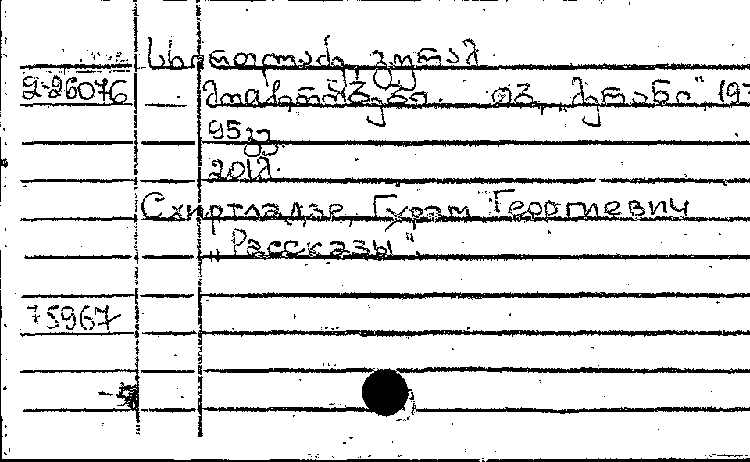 სხირტლაძე, გურამ.
2-26076 — მოთხრობები. თბ., „მერანი“, 197
95 გვ.
20 კ.
Схиртладзе, Гурам Георгиевич
„Рассказы“.
75967